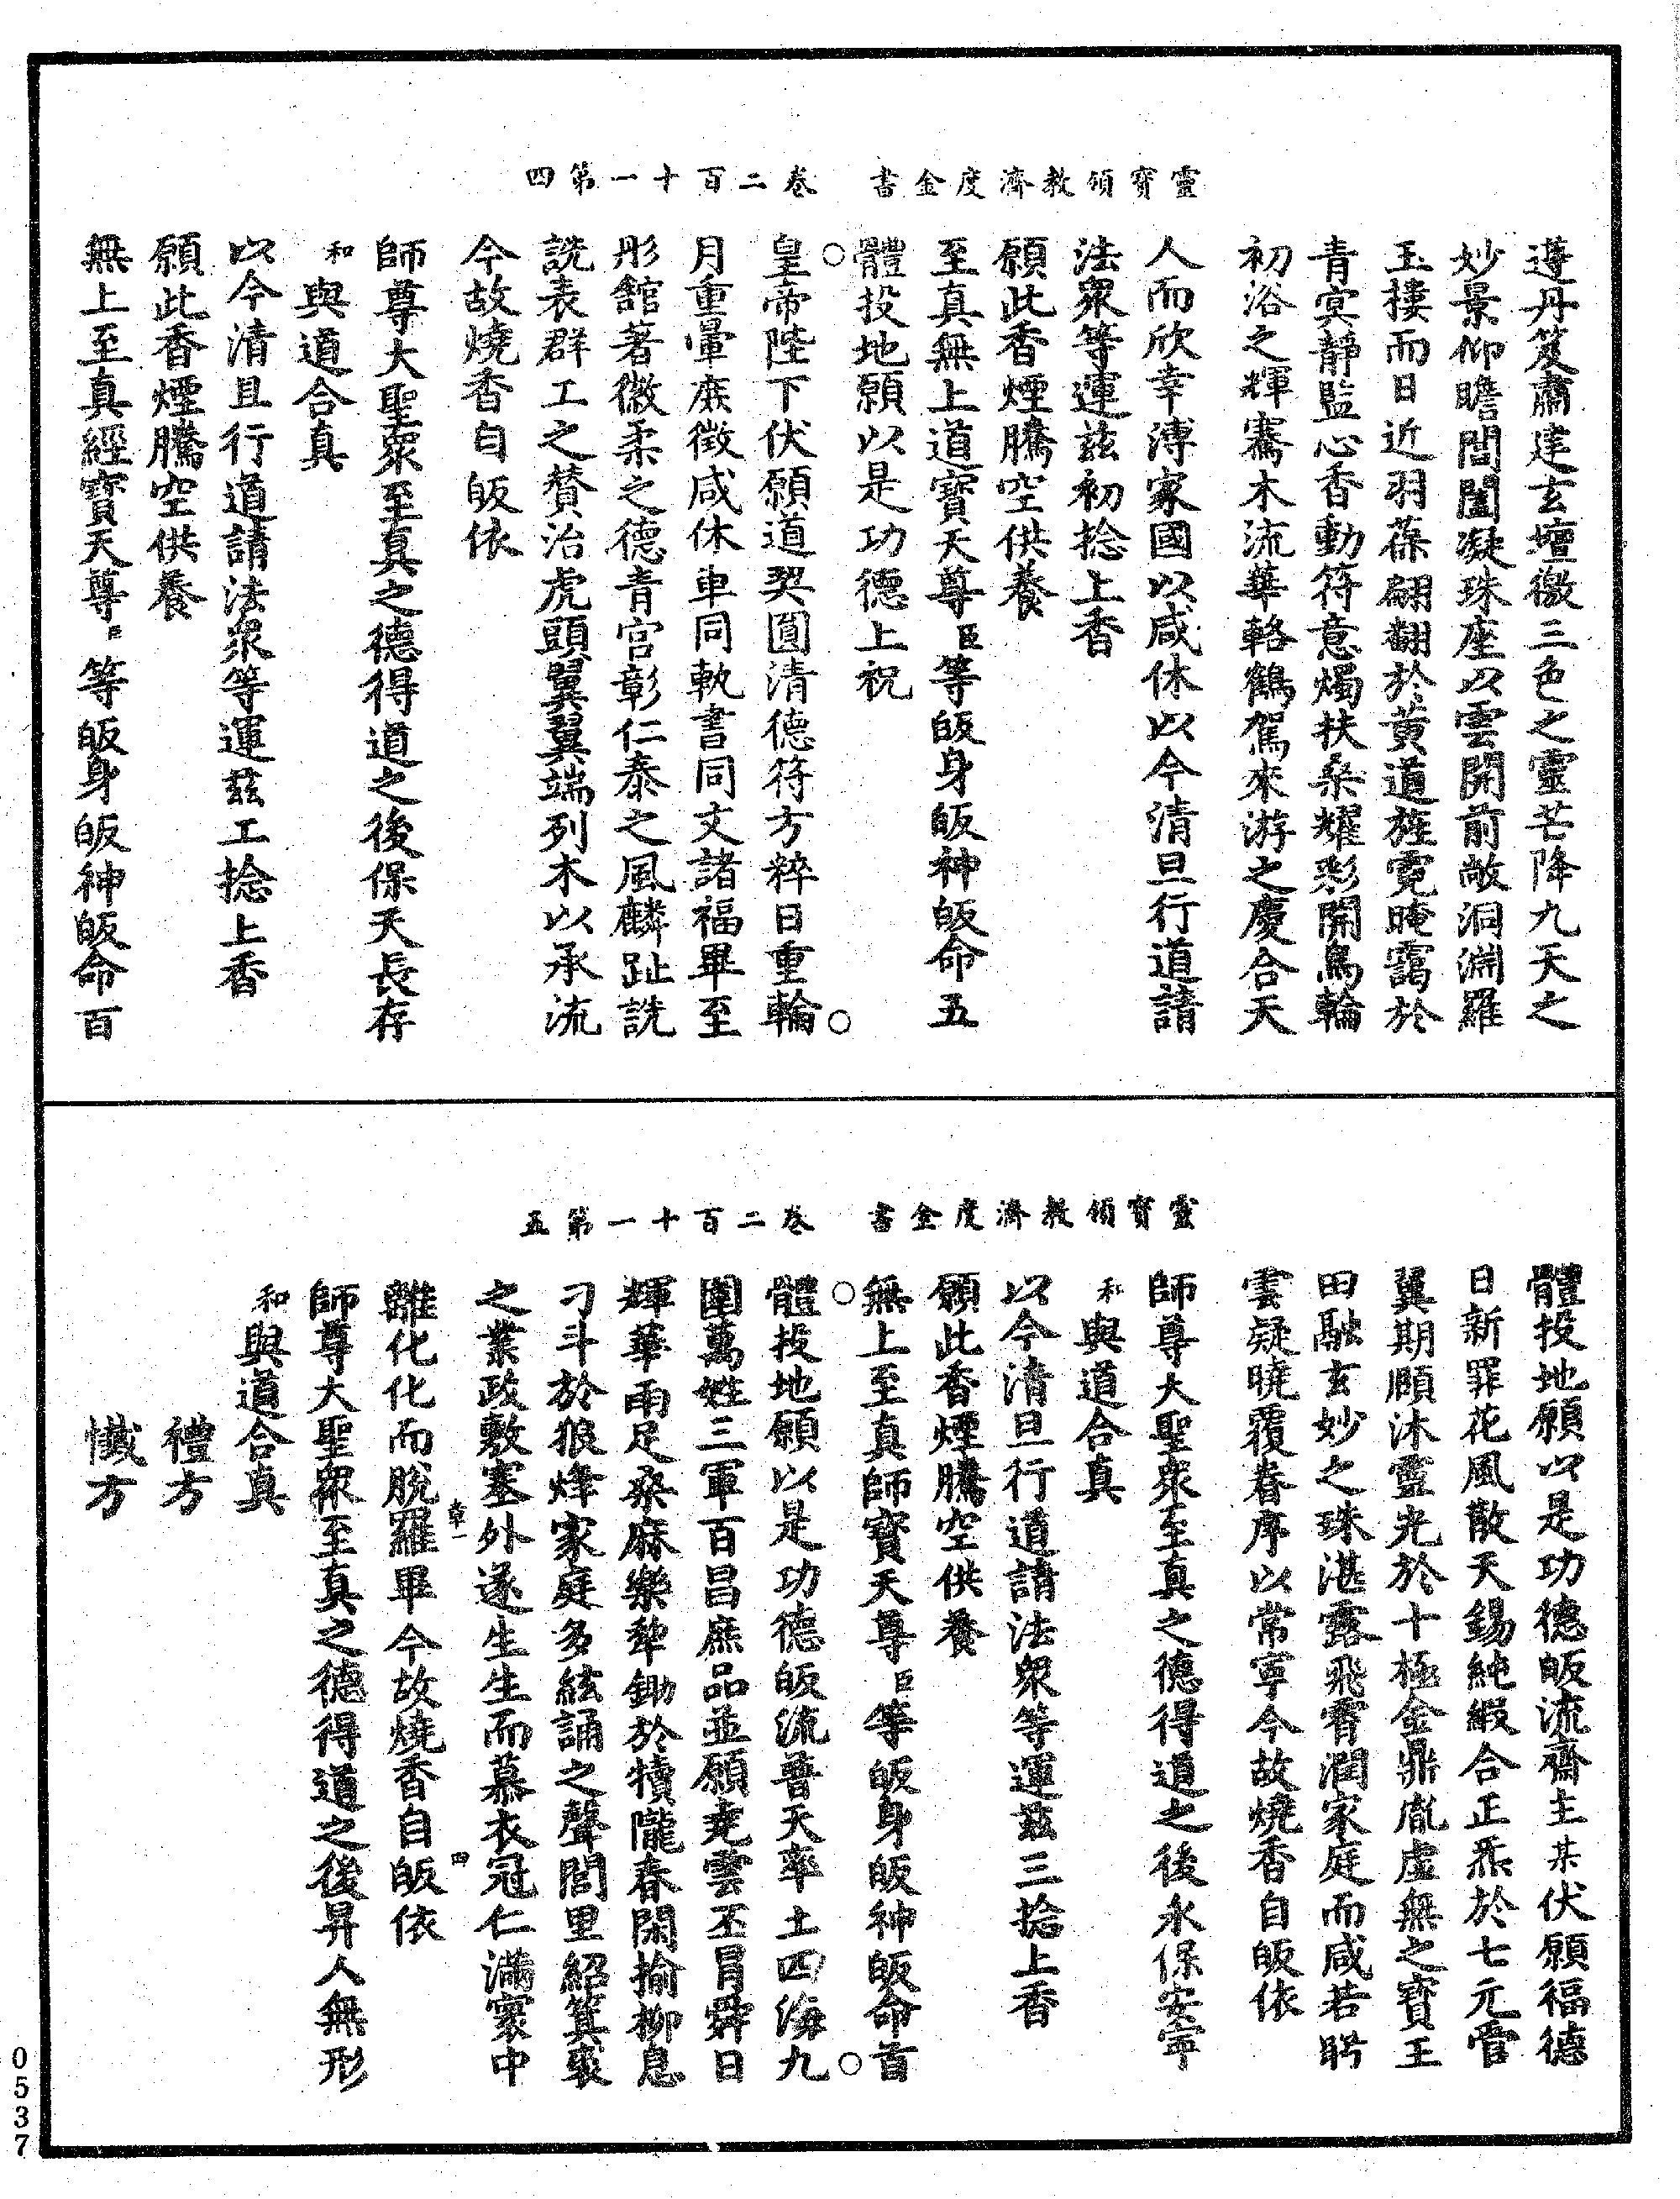 靈寶領教濟度金書　卷二百十一第四
遵丹笈肅建玄壇徼三色之靈芒降九天之
妙景仰瞻閶闔凝珠座以雲開前敞洞淵羅
玉樓而日近羽葆翩翻於黃道旌霓晻靄於
青冥靜監心香動符意燭扶桑耀彩開烏輪
初浴之輝騫木流華輅鶴駕來游之慶合天
人而欣幸溥家國以咸休以今清旦行道請
法眾等運茲初捻上香
願此香煙騰空供養
至真無上道寶天尊臣等皈身皈神皈命五
體投地願以是功德上祝
○皇帝陛下伏願道契圓清德符方粹日重輪○
月重暈庶徵咸休車同軌書同文諸福畢至
彤舘著徽柔之德青宮彰仁泰之風麟趾詵
詵表群工之贊治虎頭翼翼端列木以承流
今故燒香自皈依
師尊大聖眾至真之德得道之後保天長存
和與道合真
以今清旦行道請法眾等運茲工捻上香
願此香煙騰空供養
無上至真經寶天尊臣等皈身皈神皈命百
靈寶領教濟度金書　卷二百十一第五
體投地願以是功德皈流齋主某伏願福德
日新罪花風散天錫純緞合正炁於七元霄
翼期願沐靈光於十極金鼎胤虛無之寶玉
田融玄妙之珠湛露飛霄潤家庭而咸若盱
雲疑曉覆春序以常寧今故燒香自皈依
師尊大聖眾至真之德得道之後永保安寧
和與道合真
以今清旦行道請法眾等運茲三捻上香
願此香煙騰空供養
無上至真師寶天尊臣等皈身皈神皈命首
○體投地願以是功德皈流普天率土四海九○
圍萬姓三軍百昌庶品並願堯雲丕冒舜日
輝華雨足桑麻樂犂鋤於犢隴春閑揄柳息
刁斗於狼烽家庭多絃誦之聲閭里紹箕裘
之業政敷塞外遂生生而慕衣冠仁滿寰中
離化化而脫羅畢今故燒香自皈依
師尊大聖眾至真之德得道之後昇入無形
和與道合真
禮方
懺方
章一
四
0537